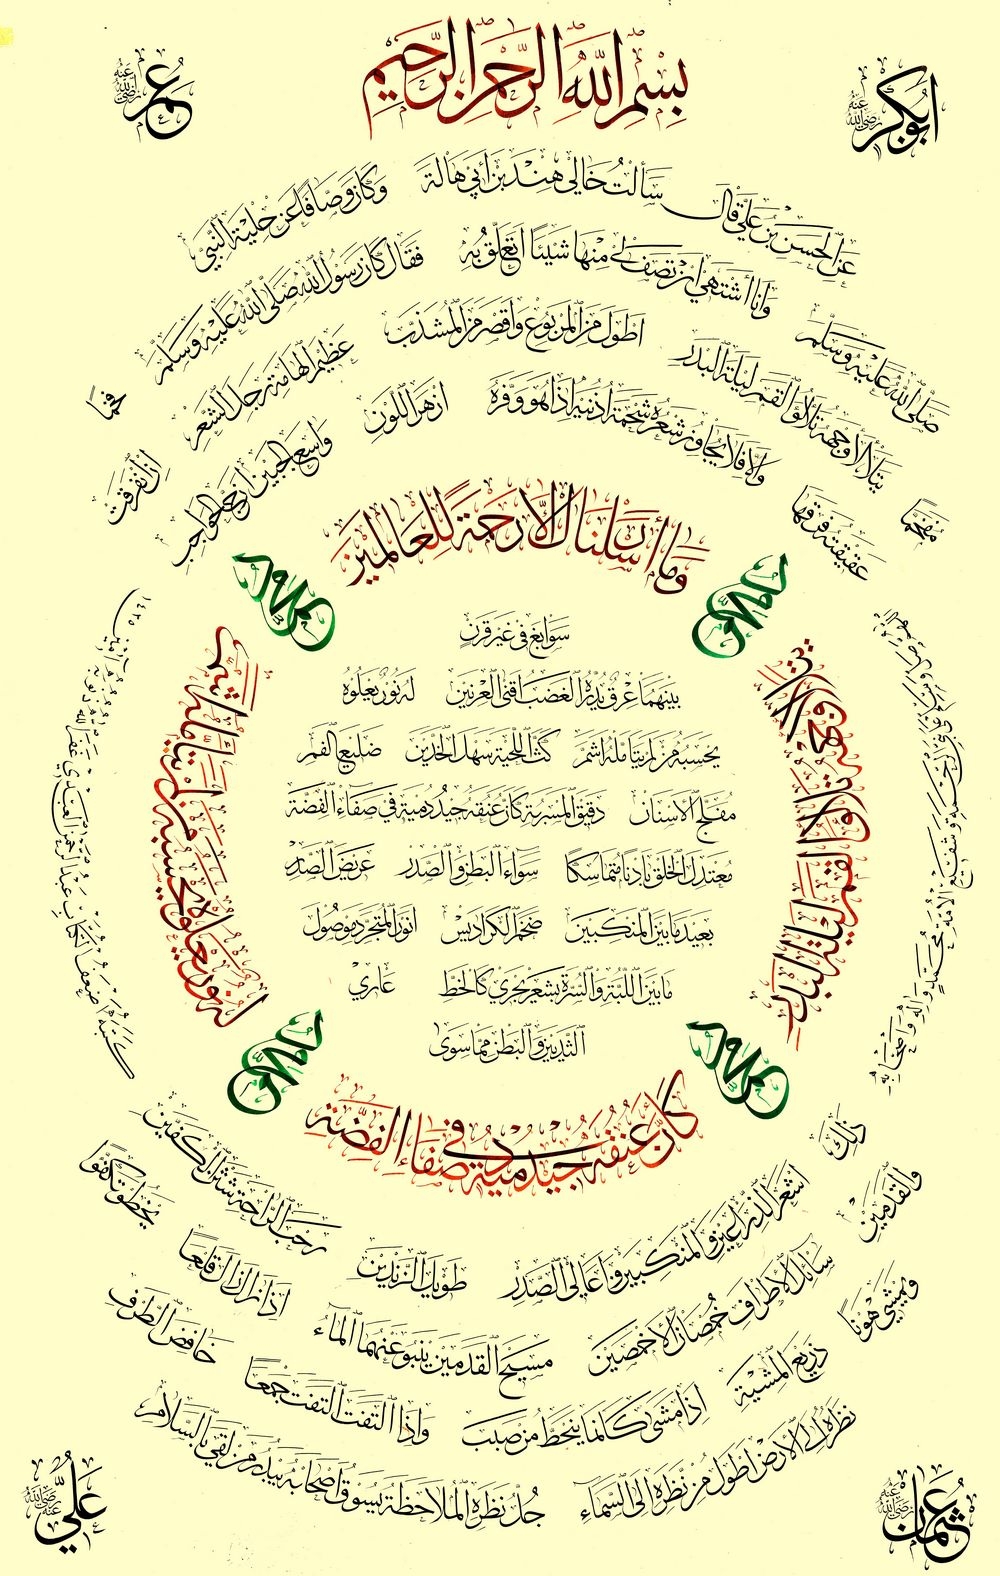 بسم الله الرحمن الرحيم
ابوبكر رضي الله عنه
عمر رضي الله عنه
عن الحسن بن علي قال سألت خالي هند بن أبي هالة وكان وصافا عن حلية النبي
صلى الله عليه وسلم وأنا أشتهي ان تصف لي منها شيئا اتعلق به فقال كان رسول الله صلى الله عليه وسلم فخما
مفخما يتلألأ وجهه تلألؤ القمر ليلة البدر اطول من المربوع واقصر من المشذب عظيم الهامة رجل الشعر ان انفرقت
عقيقته فرقها والا فلا يجاوز شعره شحمة اذنيه اذا هو وفره ازهر اللون واسع الجبين ازج الحواجب
وما أرسلناك الا رحمة للعالمين
سوابغ في غير قرن
بينهما عرق يدره الغضب اقنى العرنين له نور يعلوه
يحسبه من لم يتامله اشم كث اللحية سهل الخدين ضليع الفم
مفلج الاسنان دقيق المسربة كان عنقه جيد دمية في صفاء الفضة
معتدل الخلق بادنا متماسكا سواء البطن والصدر عريض الصدر
بعيد ما بين المنكبين ضخم الكراديس انور المتجرد موصول
ما بين اللبة والسرة بشعر يجري كالخط عاري
الثديين والبطن مما سوى
يتلألأ وجهه تلألؤ القمر ليلة البدر
له نور يعلوه يحسبه من لم يتامله اشم
كان عنقه جيد دمية في صفاء الفضة
ذلك اشعر الذراعين والمنكبين واعالي الصدر طويل الزندين رحب الراحة شثن الكفين
والقدمين سائل الاطراف خمصان الاخمصين مسيح القدمين ينبو عنهما الماء اذا زال زال قلعا يخطو تكفؤا
ويمشي هونا ذريع المشية اذا مشى كانما ينحط من صبب واذا التفت التفت جمعا خافض الطرف
نظره الى الارض اطول من نظره الى السماء جل نظره الملاحظة يسوق اصحابه يبدر من لقي بالسلام
عثمان رضي الله عنه
علي رضي الله عنه